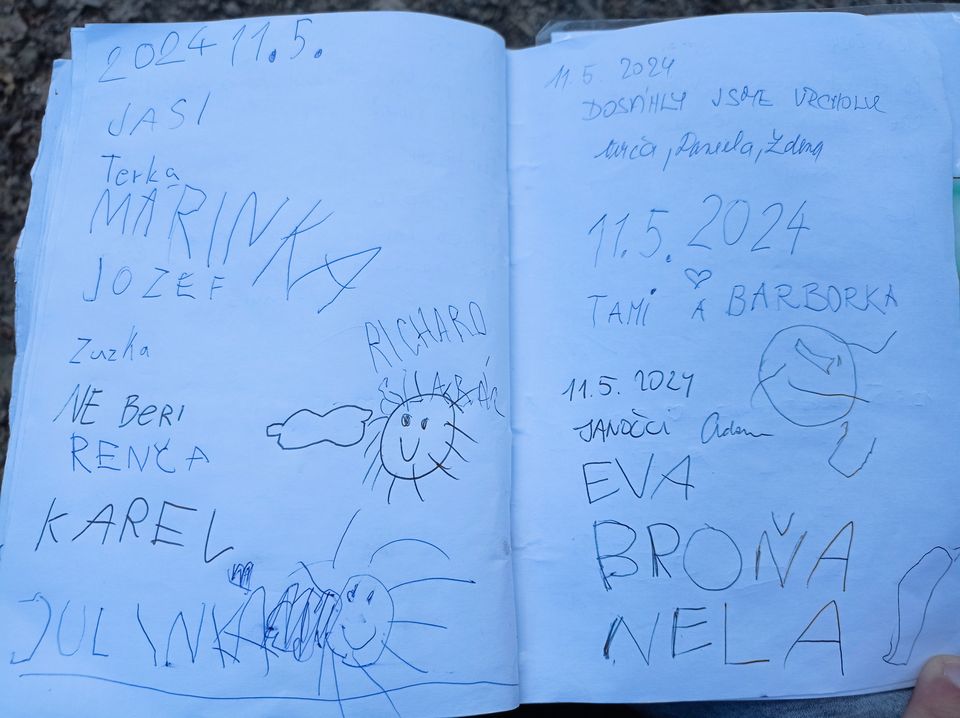 2024 11.5.
JASI
Terka
MARINKA
JOZEF
Zuzka
NE BERI
RENČA
KAREL
JULINKA
RICHARD
11.5. 2024
DOSÁHLY JSME VRCHOLU
Daniela, Zdena
11.5. 2024
TAMI A BARBORKA
11.5. 2024
JANOČCI Adam
EVA
BROŇA
NELA